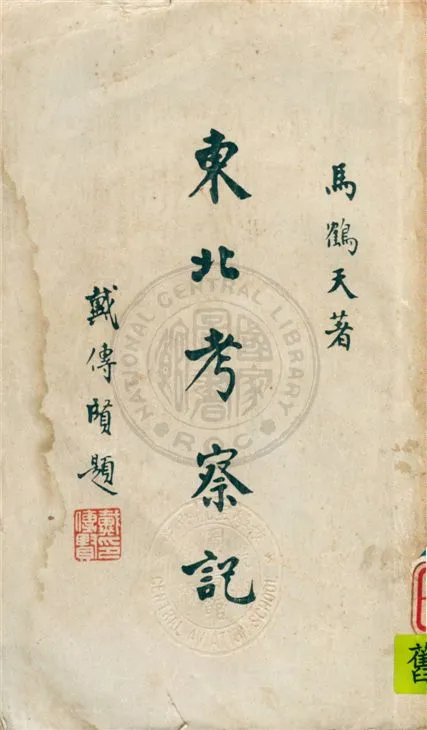 馬鶴天著
東北考察記
戴傳賢題
戴傳賢印
NATIONAL CENTRAL LIBRARY
R.O.C.
CENTRAL AVIATION SCHOOL
舊